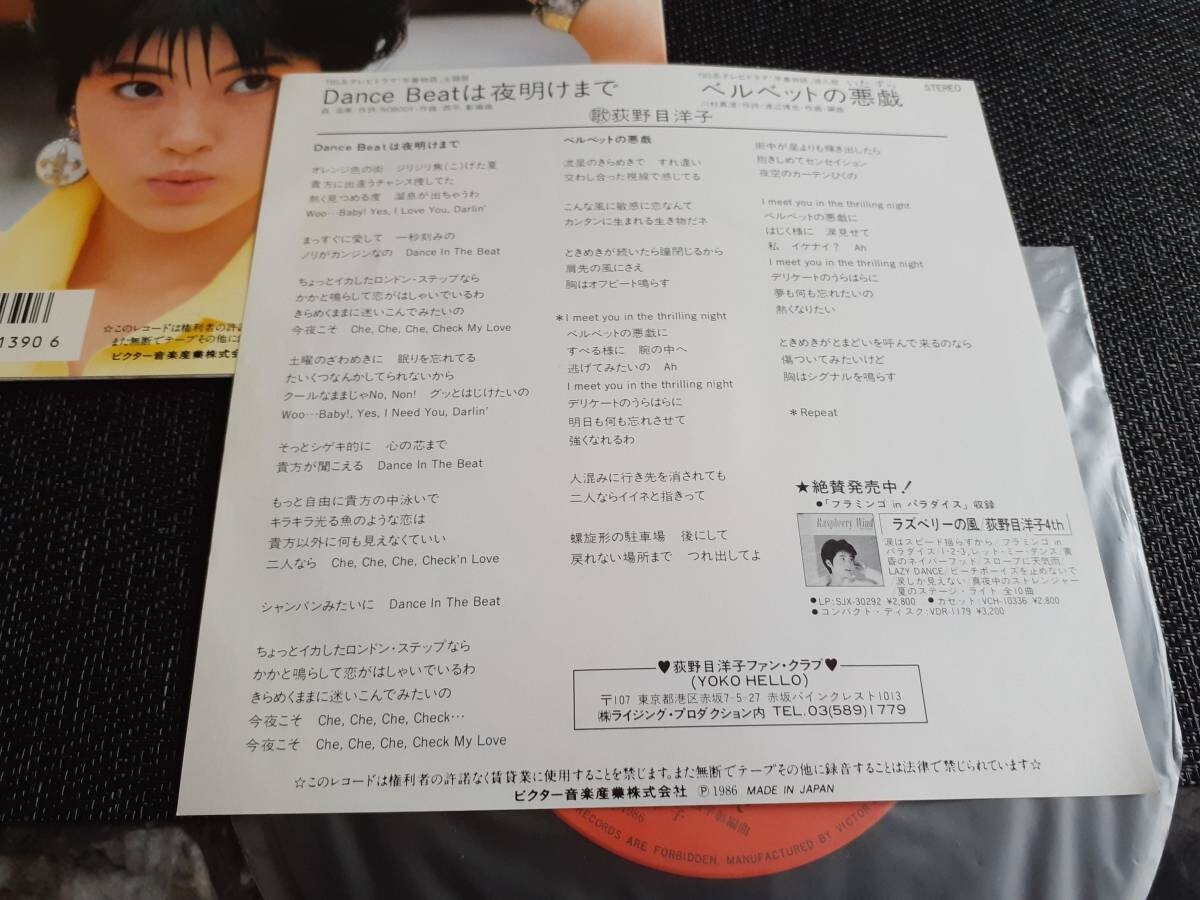 TBS系テレビドラマ「早春物語」主題歌
Dance Beatは夜明けまで
TBS系テレビドラマ「早春物語」挿入歌
いたずら
ベルベットの悪戯
STEREO
歌 荻野目洋子
Dance Beatは夜明けまで
オレンジ色の街 ジリジリ焦(こ)げた夏
貴方に出逢うチャンス捜してた
熱く見つめる度 溜息が出ちゃうわ
Woo…Baby! Yes, I Love You, Darlin'
まっすぐに愛して 一秒刻みの
ノリがカンジンなの Dance In The Beat
ちょっとイカしたロンドン・ステップなら
かかと鳴らして恋がはしゃいでいるわ
きらめくままに迷いこんでみたいの
今夜こそ Che, Che, Che, Check My Love
土曜のざわめきに 眠りを忘れてる
たいくつなんかしてられないから
クールなままじゃNo, Non! グッとはじけたいの
Woo…Baby!, Yes, I Need You, Darlin'
そっとシゲキ的に 心の芯まで
貴方が聞こえる Dance In The Beat
もっと自由に貴方の中泳いで
キラキラ光る魚のような恋は
貴方以外に何も見えなくていい
二人なら Che, Che, Che, Check'n Love
シャンパンみたいに Dance In The Beat
ちょっとイカしたロンドン・ステップなら
かかと鳴らして恋がはしゃいでいるわ
きらめくままに迷いこんでみたいの
今夜こそ Che, Che, Che, Check…
今夜こそ Che, Che, Che, Check My Love
ベルベットの悪戯
流星のきらめきで すれ違い
交わし合った視線で感じてる
こんな風に敏感に恋なんて
カンタンに生まれる生き物だネ
ときめきが続いたら瞳閉じるから
肩先の風にさえ
胸はオフビート鳴らす
*I meet you in the thrilling night
ベルベットの悪戯に
すべる様に 腕の中へ
逃げてみたいの Ah
I meet you in the thrilling night
デリケートのうらはらに
明日も何も忘れさせて
強くなれるわ
人混みに行き先を消されても
二人ならイイネと指きって
螺旋形の駐車場 後にして
戻れない場所まで つれ出してよ
街中が星よりも輝き出したら
抱きしめてセンセイション
夜空のカーテンひくの
I meet you in the thrilling night
ベルベットの悪戯に
はじく様に 涙見せて
私 イケナイ? Ah
I meet you in the thrilling night
デリケートのうらはらに
夢も何も忘れたいの
熱くなりたい
ときめきがとまどいを呼んで来るのなら
傷ついてみたいけど
胸はシグナルを鳴らす
*Repeat
★絶賛発売中!
●「フラミンゴ in パラダイス」収録
Raspberry Wind
ラズベリーの風/荻野目洋子4th
涙はスピード揺らすから/フラミンゴ in
パラダイス/1・2・3、レット・ミー・ダンス/黄
昏のネイバーフッド/スロープに天気雨/
LAZY DANCE/ビーチボーイズを止めないで
/涙しか見えない/真夜中のストレンジャー
/夏のステージ・ライト 全10曲
●LP:SJX-30292 ¥2,800 ●カセット:VCH-10336 ¥2,800
●コンパクト・ディスク:VDR-1179 ¥3,200
♥荻野目洋子ファン・クラブ♥
(YOKO HELLO)
〒107 東京都港区赤坂7-5-27 赤坂パインクレスト1013
㈱ライジング・プロダクション内 TEL.03(589)1779
☆このレコードは権利者の許諾なく賃貸業に使用することを禁じます。また無断でテープその他に録音することは法律で禁じられています☆
ビクター音楽産業株式会社 Ⓟ1986 MADE IN JAPAN
13906
☆このレコードは権利者の許諾
また無断でテープその他に
ビクター音楽産業株式会
RECORDS ARE FORBIDDEN. MANUFACTURED BY VICTOR